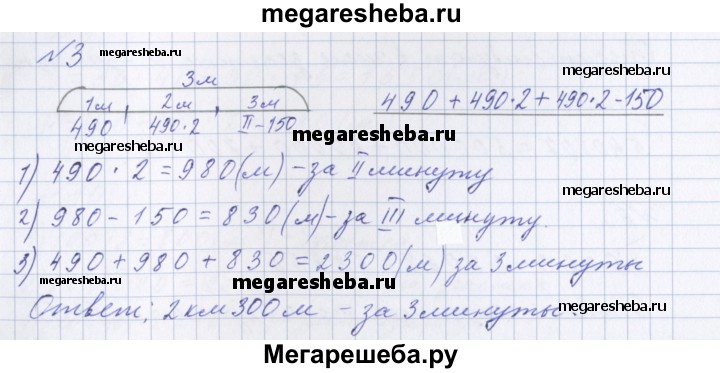 megaresheba.ru
№3
megaresheba.ru
3м
megaresheba.ru
1м 2м 3м
490 490·2 II-150
490 + 490·2 + 490·2-150
megaresheba.ru
1) 490 · 2 = 980(м) - за II минуту
megaresheba.ru
2) 980 - 150 = 830(м) - за III минуту.
3) 490 + 980 + 830 = 2300(м) за 3 минуты
megaresheba.ru
Ответ; 2 км 300 м - за 3 минуты.
megaresheba.ru
Мегарешеба.ру